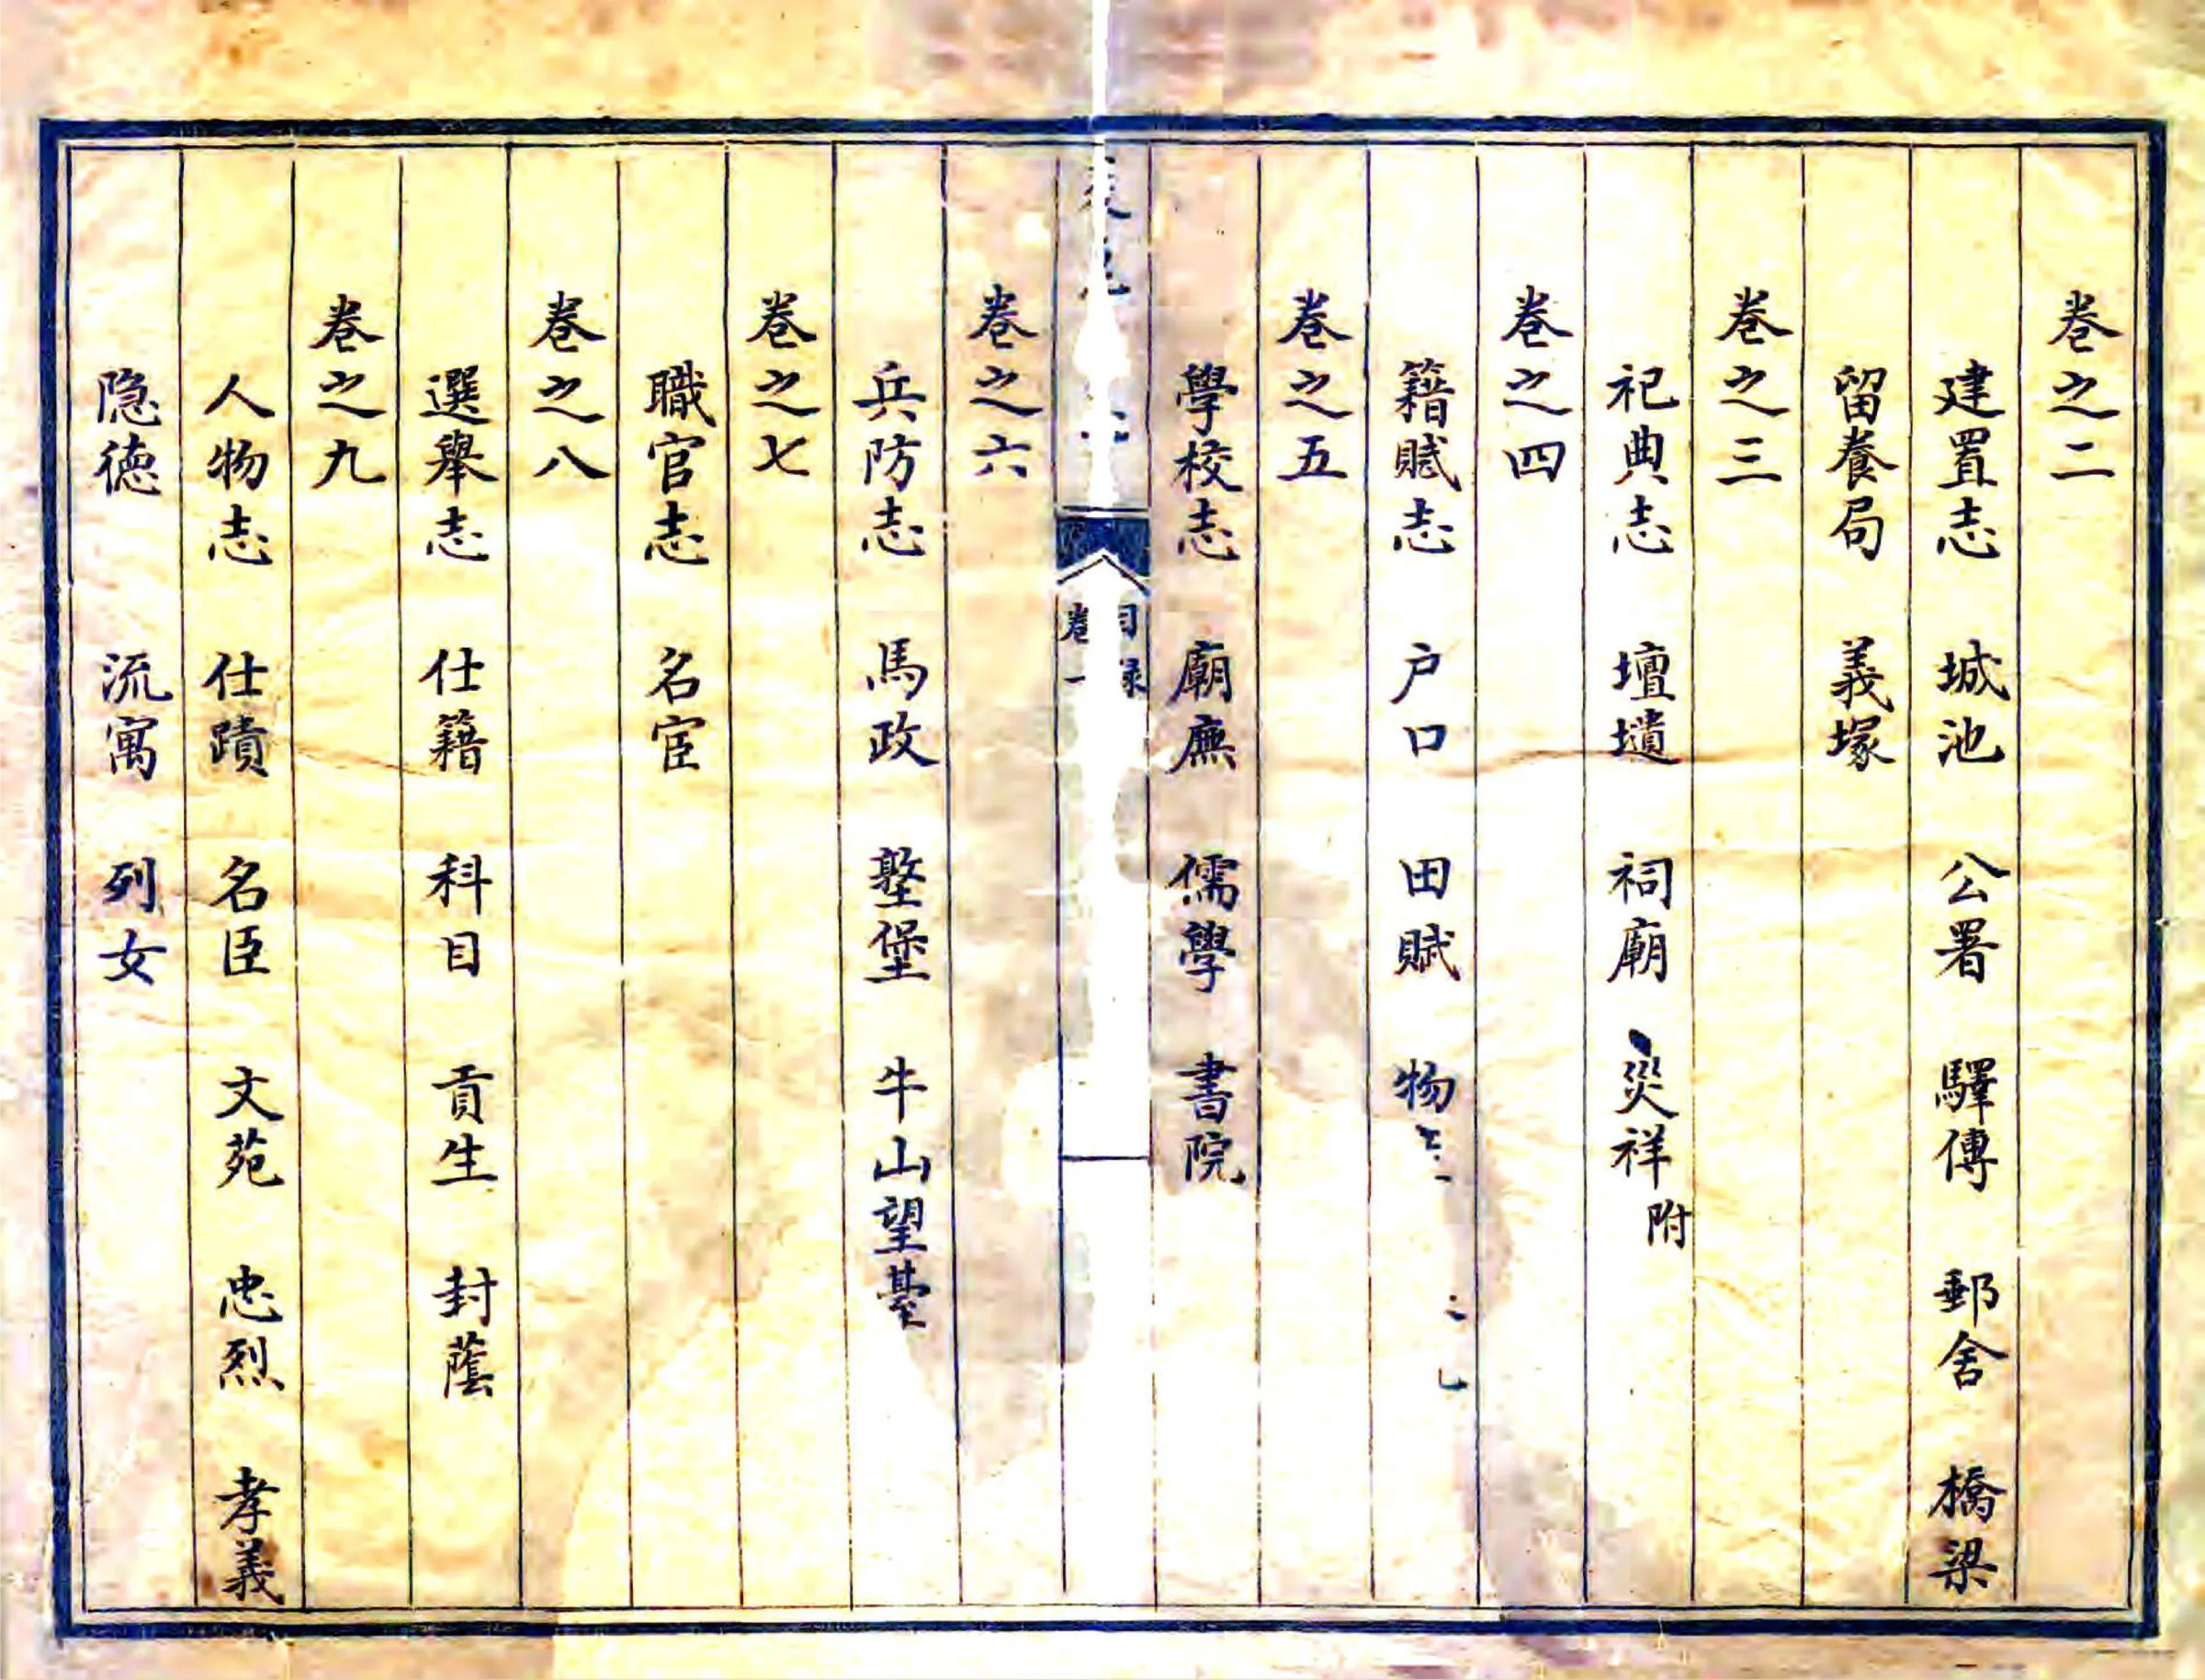 卷之二
建置志　城池　公署　驛傳　郵舍　橋梁
留養局　義塚
卷之三
祀典志　壇壝　祠廟　災祥附
卷之四
籍賦志　户口　田賦　物
卷之五
學校志　廟廡　儒學　書院
目録
卷一
卷之六
兵防志　馬政　墪堡　牛山望臺
卷之七
職官志　名宦
卷之八
選舉志　仕籍　科目　貢生　封蔭
卷之九
人物志　仕蹟　名臣　文苑　忠烈　孝義
隐德　流寓　列女